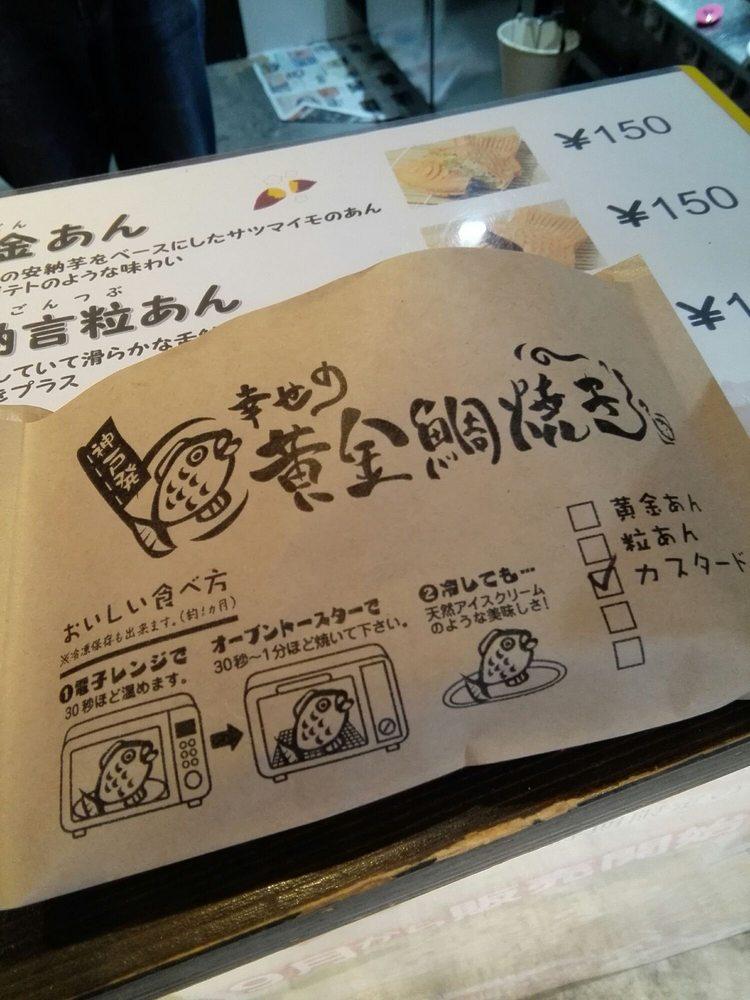 ¥150
金あん
の安納芋をベースにしたサツマイモのあん
テトのような味わい
¥150
ごんつぶ
納言粒あん
していて滑らかな舌触
をプラス
¥1
神戸発
幸せの
黄金鯛焼き
黄金あん
粒あん
カスタード
おいしい食べ方
※冷凍保存も出来ます。(約1ヵ月)
❶電子レンジで
30秒ほど温めます。
オーブントースターで
30秒~1分ほど焼いて下さい。
❷冷しても…
天然アイスクリーム
のような美味しさ!
9月から販売開始